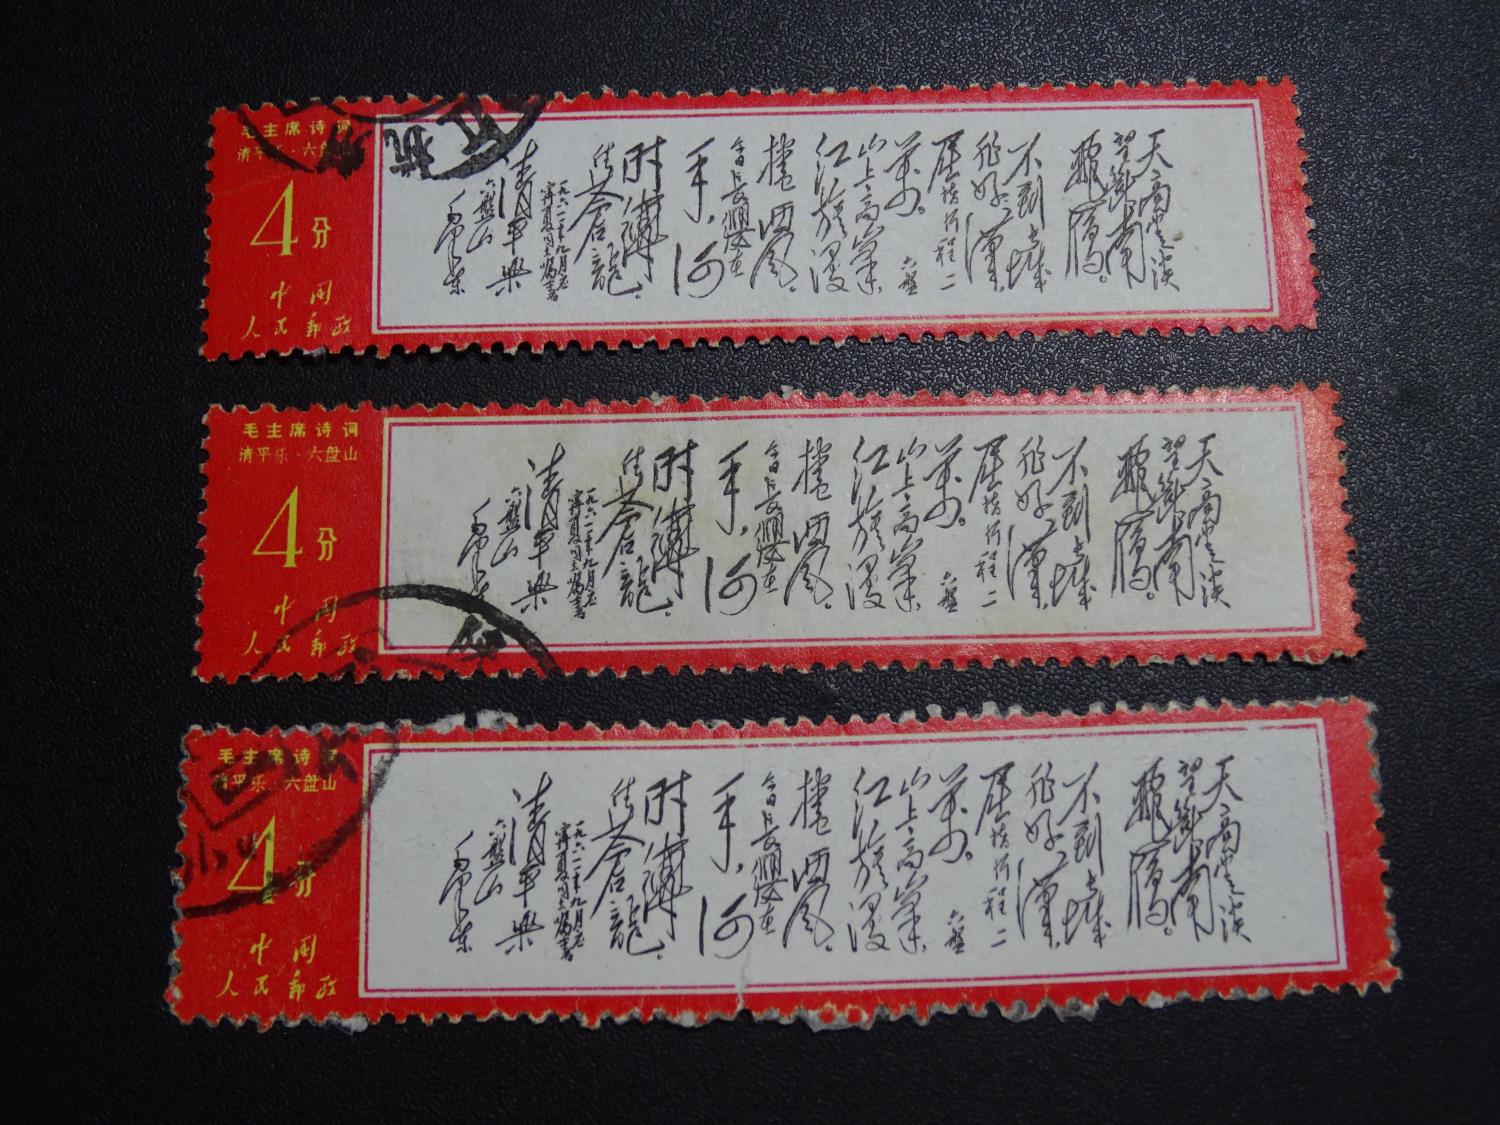 毛主席诗词
清平乐·六盘山
4分
中国
人民邮政
天高云淡
望断南
飞雁。
不到长城
非好汉，
屈指行程二
万。六盘
山上高峰，
红旗漫
捲西风。
今日长缨在
手，何
时缚
住苍龙。
一九六一年九月应
宁夏同志嘱书
清平乐
六盘山
毛泽东
江
杭
毛主席诗词
清平乐·六盘山
4分
中国
人民邮政
天高云淡
望断南
飞雁。
不到长城
非好汉，
屈指行程二
万。六盘
山上高峰，
红旗漫
捲西风。
今日长缨在
手，何
时缚
住苍龙。
一九六一年九月应
宁夏同志嘱书
清平乐
六盘山
毛泽东
毛主席诗词
清平乐·六盘山
4分
中国
人民邮政
天高云淡
望断南
飞雁。
不到长城
非好汉，
屈指行程二
万。六盘
山上高峰，
红旗漫
捲西风。
今日长缨在
手，何
时缚
住苍龙。
一九六一年九月应
宁夏同志嘱书
清平乐
六盘山
毛泽东